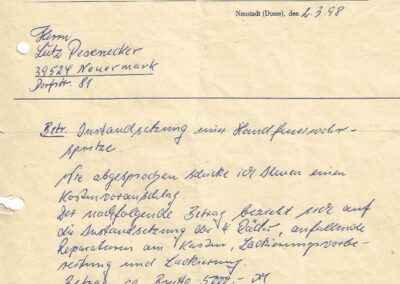 Neustadt (Dosse), den 2.3.98
Herrn
Lutz Pesenecker
39524 Neuermark
Dorfstr. 81
Betr. Instandsetzung einer Handfeuerwehr-
spritze.
Wie abgesprochen schicke ich Ihnen einen
Kostenvoranschlag.
Der nachfolgende Betrag bezieht sich auf
die Instandsetzung der 4 Räder, anfallende
Reparaturen am Kasten, Lackierungsvorbe-
reitung und Lackierung.
Betrag ca. Brutto 5000,- DM